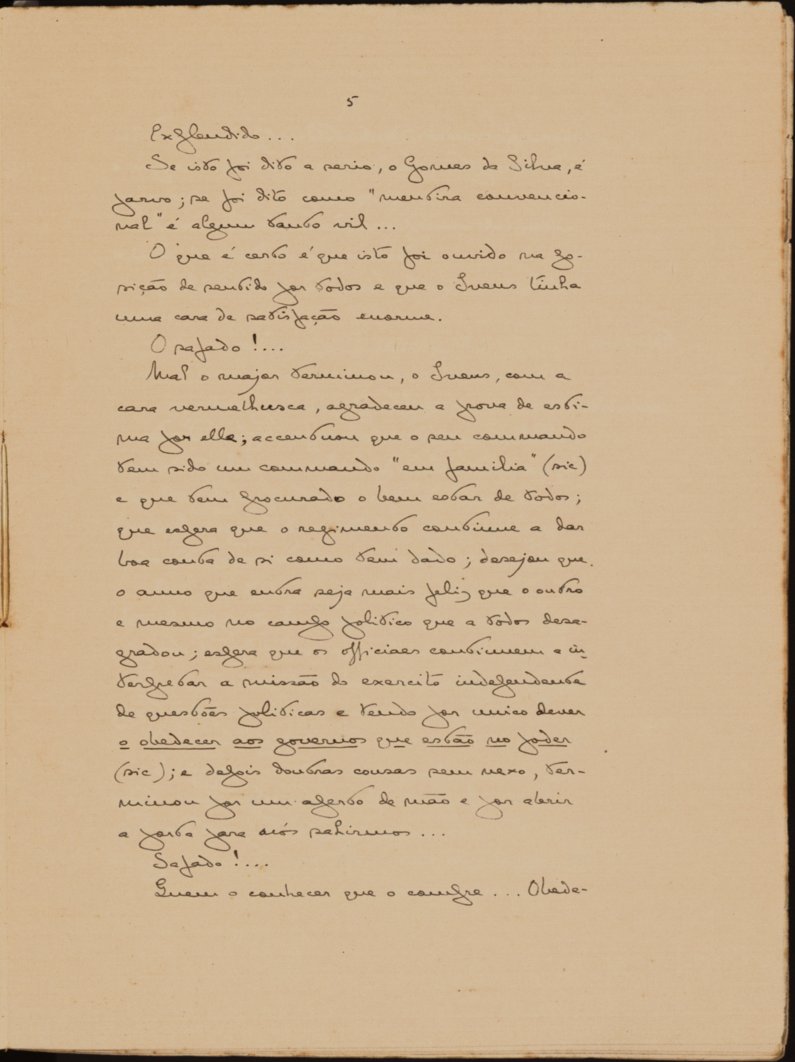 5
Explendido...
Se isto foi dito a serio, o Gomes da Silva, é
parvo; se foi dito como "mentira convencio-
nal" é algum tanto vil...
O que é certo é que isto foi ouvido na po-
sição de sentido por todos e que o Ivens tinha
uma cara de satisfação enorme.
O safado!...
Mal o major terminou, o Ivens, com a
cara vermelhusca, agradeceu a prova de esti-
ma por elle; accentuou que o seu commando
tem sido um commando "em familia" (sic)
e que tem procurado o bem estar de todos;
que espera que o regimento continue a dar
boa conta de si como tem dado; desejou que
o anno que entra seja mais feliz que o outro
e mesmo no campo politico que a todos desa-
gradou; espera que os officiaes continuem a in-
terpretar a missão do exercito independente
de questões politicas e tendo por unico dever
o obedecer aos governos que estão no poder
(sic); e depois doutras cousas sem nexo, ter-
minou por um aperto de mão e por abrir
a porta para nós sahirmos...
Safado!...
Quem o conhecer que o compre... Obede-